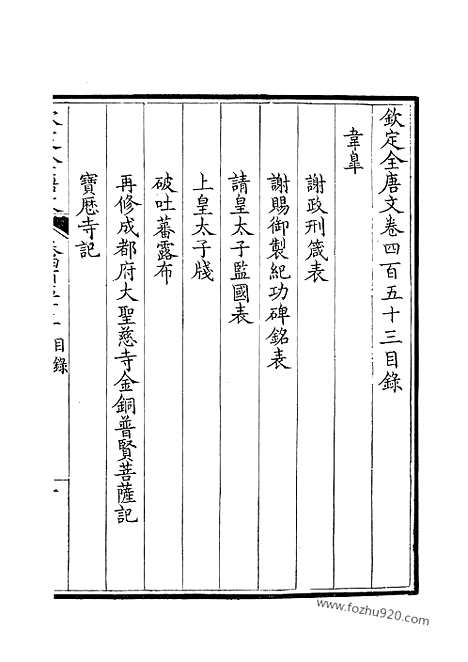 欽定全唐文卷四百五十三目錄
韋臯
謝政刑箴表
謝賜御製紀功碑銘表
請皇太子監國表
上皇太子牋
破吐蕃露布
再修成都府大聖慈寺金銅普賢菩薩記
寶厯寺記
目錄
一
www.fozhu920.com